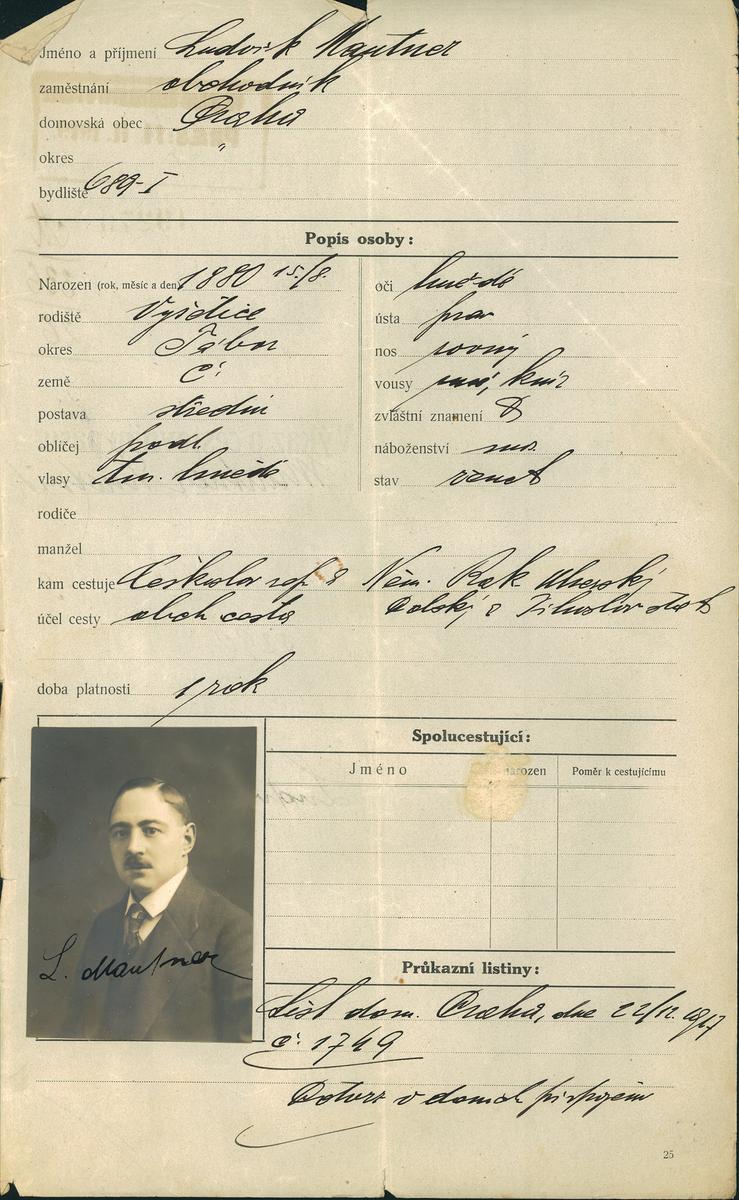 Jméno a příjmení Ludvík Mautner
zaměstnání obchodník
domovská obec Praha
okres "
bydliště 689-I
Popis osoby:
Narozen (rok, měsíc a den) 1880 15/8.
rodiště Vyšetice
okres Tábor
země Č.
postava střední
obličej podl.
vlasy tm. hnědé
oči hnědé
ústa prav
nos rovný
vousy knír
zvláštní znamení
náboženství
stav ženat
rodiče
manžel
kam cestuje Českoslov rep. Něm. Rak. Uherský
Polský a Jihoslov. stát
účel cesty obch cesta
doba platnosti 1 rok
Spolucestující:
Jméno narozen Poměr k cestujícímu
L. Mautner
Průkazní listiny:
List dom. Praha, dne 22/12. 1917
č. 1749
v domech
25